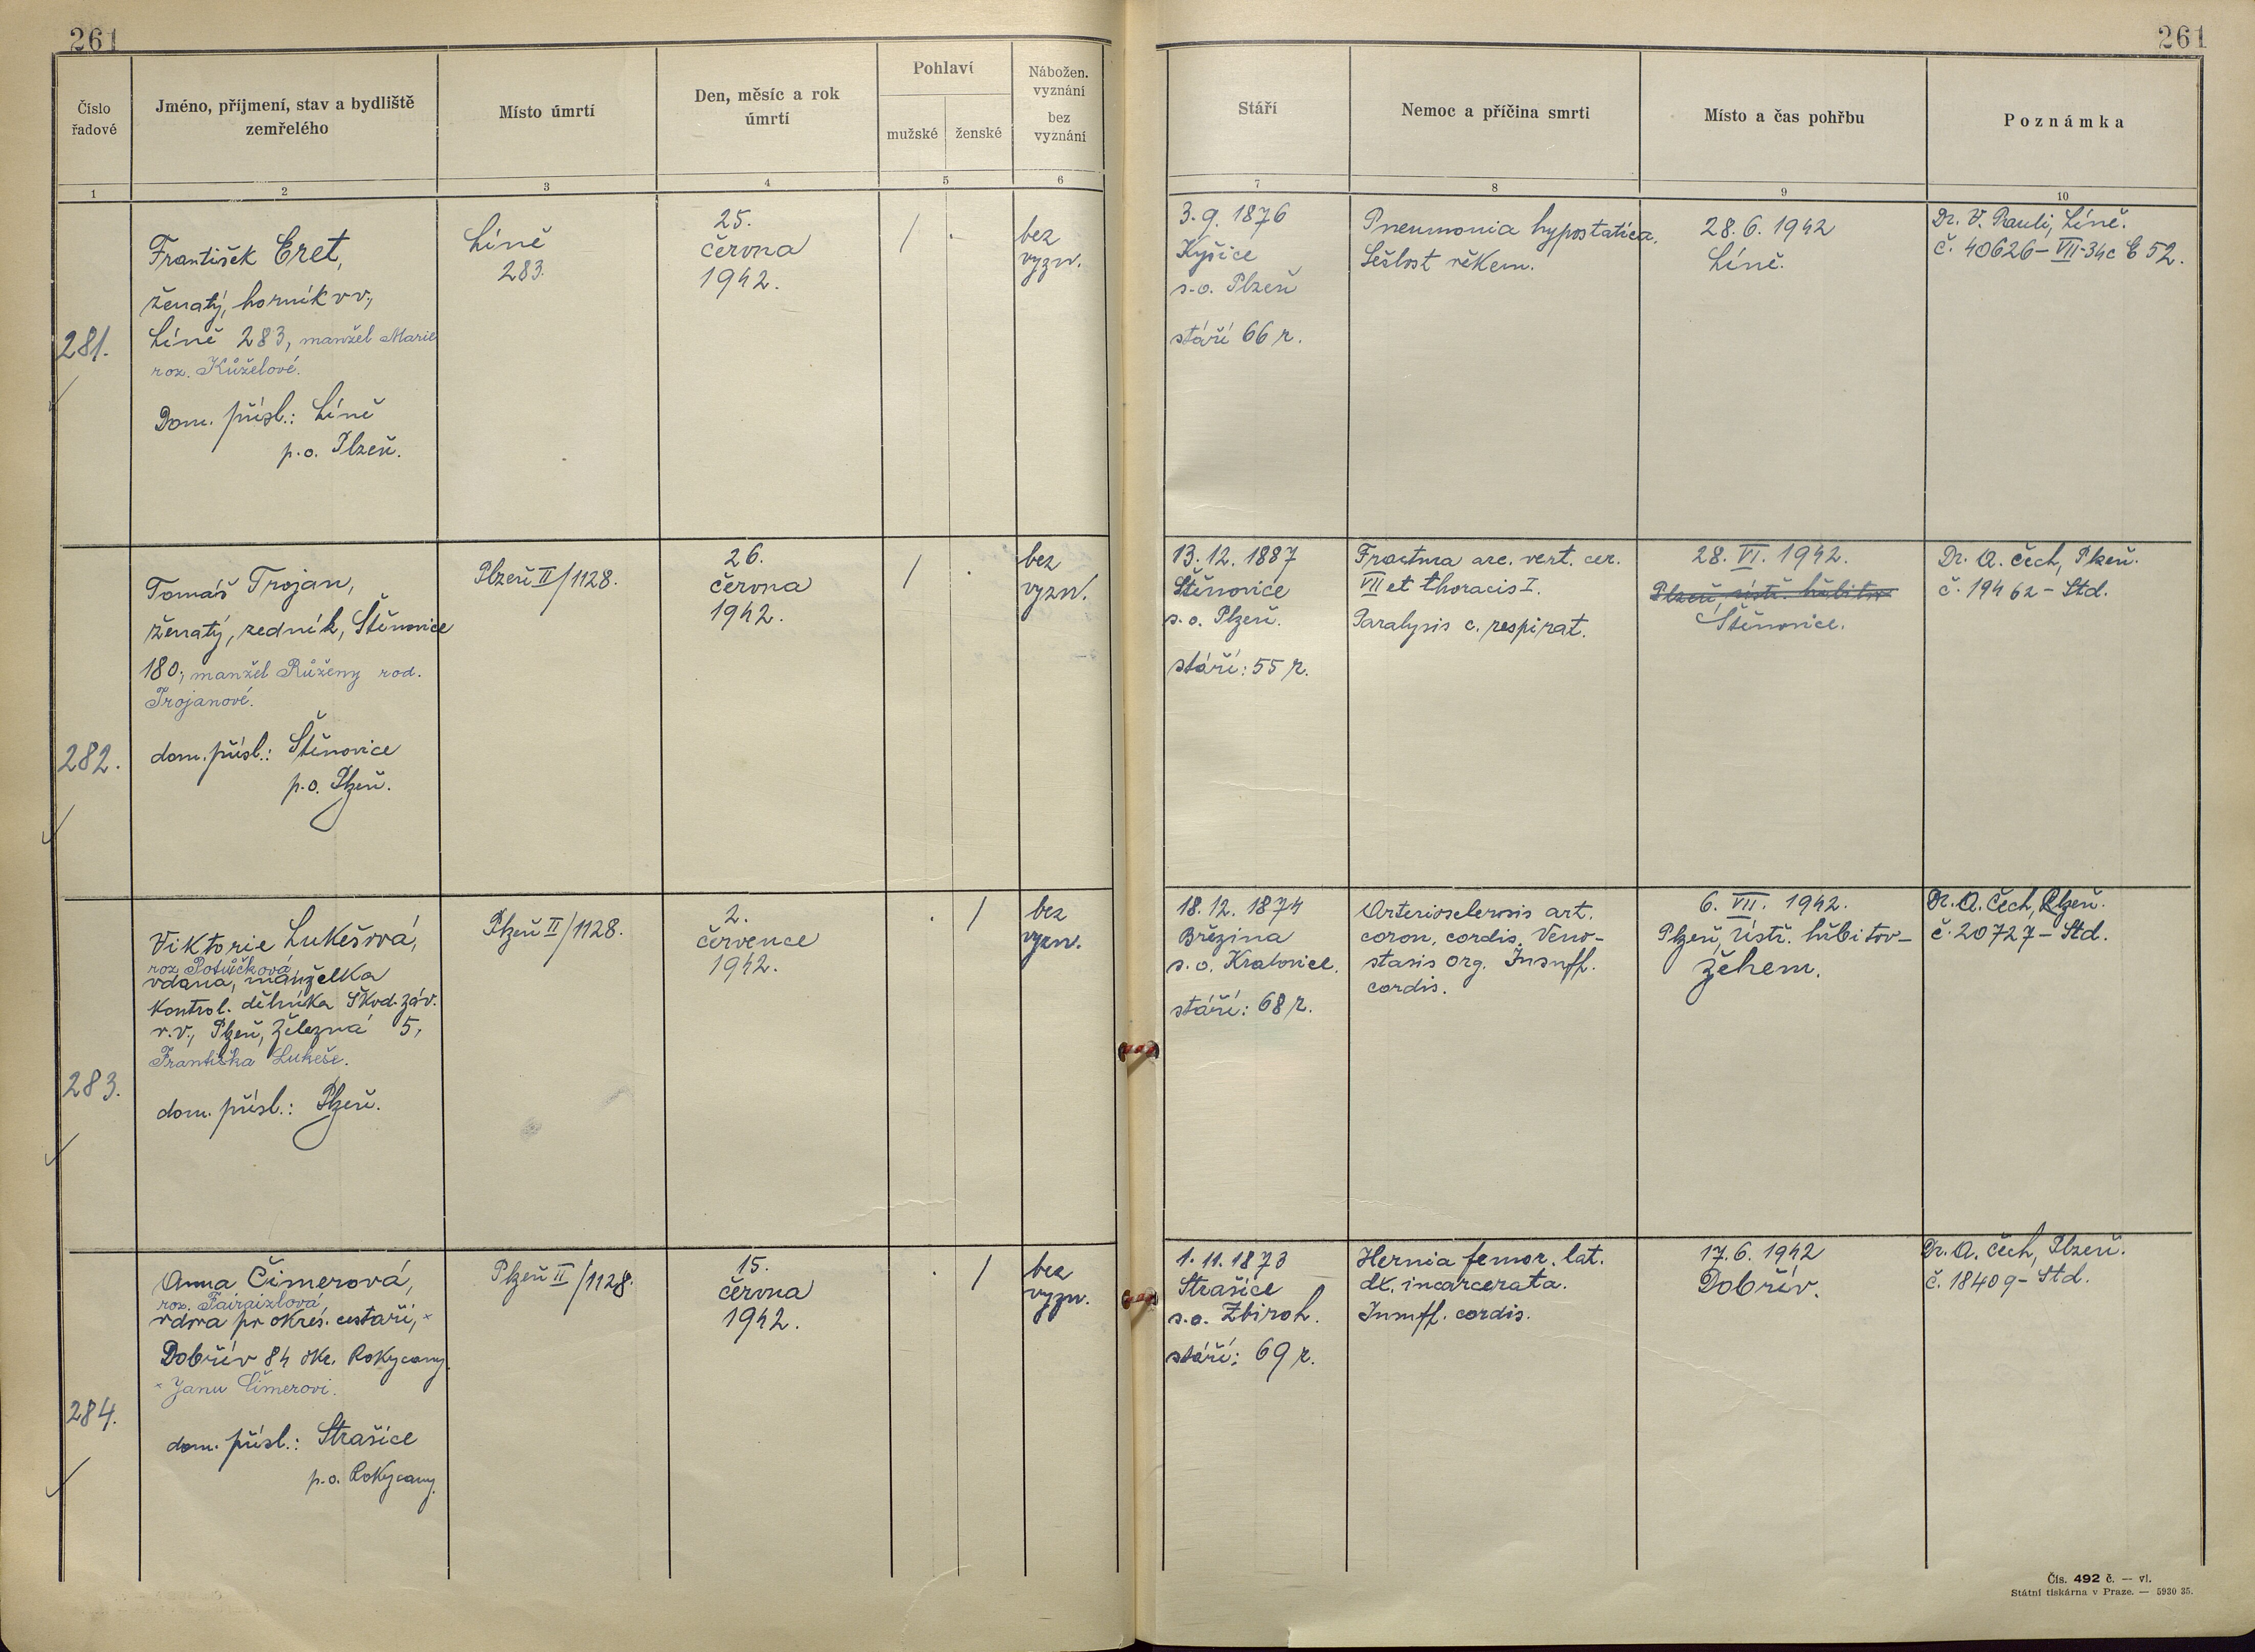 261
261
Číslo řadové
Jméno, příjmení, stav a bydliště zemřelého
Místo úmrtí
Den, měsíc a rok úmrtí
Pohlaví
mužské
ženské
Nábožen. vyznání
bez vyznání
Stáří
Nemoc a příčina smrti
Místo a čas pohřbu
Poznámka
1
2
3
4
5
6
7
8
9
10
281.
František Eret,
ženatý, horník v v.,
Líně 283, manžel Marie
roz. Kůželové.
Dom. přísl.: Líně
p.o. Plzeň.
Líně
283.
25.
června
1942.
/
.
bez
vyzn.
3.9.1876
Kyšice
s.o. Plzeň
stáří 66 r.
Pneumonia hypostatica.
Sešlost věkem.
28.6.1942
Líně.
Dr. V. Pauli, Líně.
č. 40626-VII-34c E 52.
282.
Tomáš Trojan,
ženatý, zedník, Štěnovice
180, manžel Růženy rod.
Trojanové.
dom. přísl.: Štěnovice
p.o. Plzeň.
Plzeň II/1128.
26.
června
1942.
/
.
bez
vyzn.
13.12.1887
Štěnovice
s.o. Plzeň.
stáří: 55 r.
Fractura arc. vert. cer.
VII et thoracis I.
Paralysis c. respirat.
28. VI. 1942.
Plzeň, ústř. hřbitov
Štěnovice.
Dr. A. Čech, Plzeň.
č. 19462-Std.
283.
Viktorie Lukešová,
roz. Potůčková
vdaná, manželka
kontrol. dělníka Škod. záv.
v.v., Plzeň, Železná 5,
Františka Lukeše.
dom. přísl.: Plzeň.
Plzeň II/1128.
2.
července
1942.
.
/
bez
vyzn.
18.12.1874
Březina
s.o. Kralovice.
stáří: 68 r.
Arteriosclerosis art.
coron. cordis. Veno-
stasis org. Insuff.
cordis.
6. VII. 1942.
Plzeň, ústř. hřbitov-
žehem.
Dr. A. Čech, Plzeň.
č. 20727-Std.
284.
Anna Čimerová,
roz.
vdova po okres. cestáři, ×
Dobřív 84 okr. Rokycany.
× Janu Čimerovi.
dom. přísl.: Strašice
p.o. Rokycany.
Plzeň II/1128.
15.
června
1942.
.
/
bez
vyzn.
1.11.1873
Strašice
s.o. Zbiroh.
stáří: 69 r.
Hernia femor. lat.
dx. incarcerata.
Insuff. cordis.
17.6.1942
Dobřív.
Dr. A. Čech, Plzeň.
č. 18409-Std.
Čís. 492 č. — vl.
Státní tiskárna v Praze. — 5930 35.